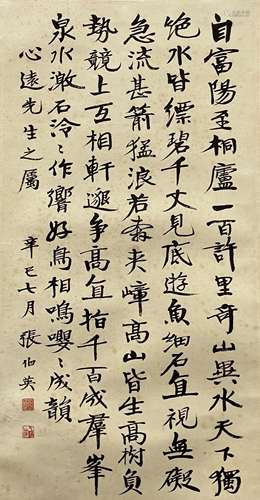 自富陽至桐廬一百許里奇山異水天下獨
絶水皆縹碧千丈見底遊魚細石直視無礙
急流甚箭猛浪若奔夾嶂高山皆生高樹負
勢競上互相軒邈争高直指千百成羣峯
泉水激石泠〻作響好鳥相鳴嚶〻成韻
心遠先生之屬
辛巳七月 張伯英